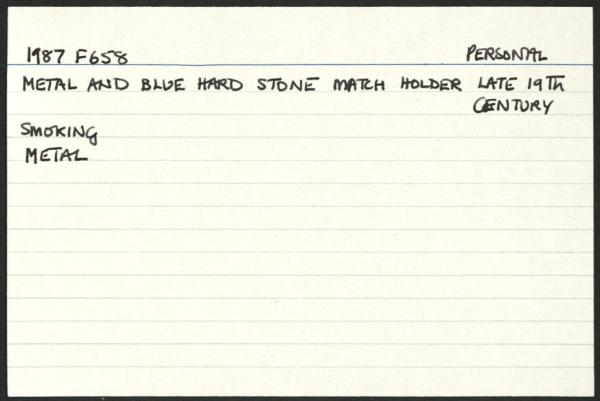 1987 F658 PERSONAL
METAL AND BLUE HARD STONE MATCH HOLDER LATE 19TH
CENTURY
SMOKING
METAL